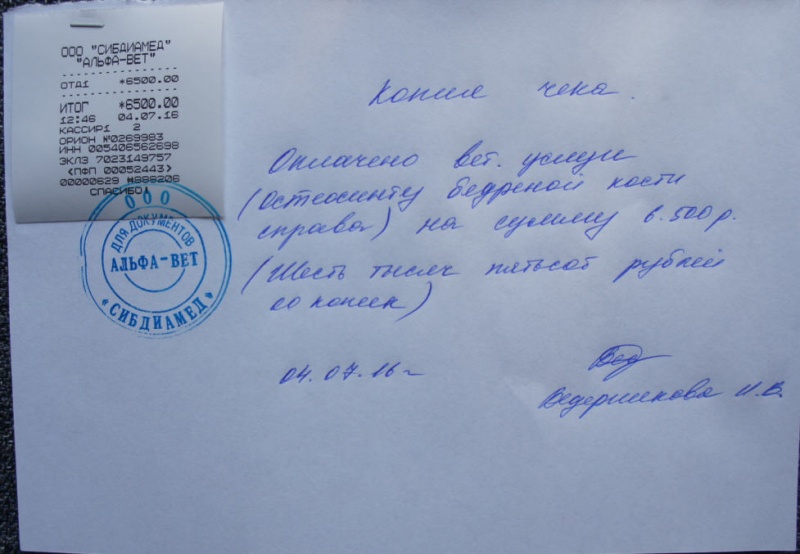 ООО "СИБДИАМЕД"
"АЛЬФА-ВЕТ"
ОТД1 *6500.00
ИТОГ *6500.00
12:46 04.07.16
КАССИР1 2
ОРИОН №0269983
ИНН 005406562698
ЭКЛЗ 7023149757
<ПФП 00052443>
00000629 #888206
СПАСИБО!
ООО
ДЛЯ ДОКУМЕНТОВ
АЛЬФА-ВЕТ
"СИБДИАМЕД"
Копия чека.
Оплачено вет. услуги
(Остеосинту бедреной кости
справа) на сумму 6.500р.
(Шесть тысяч пятьсот рублей
00 копеек)
04.07.16г
Ведерникова И.В.